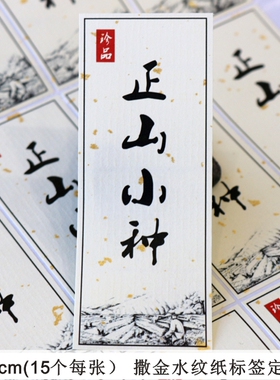 珍品
正山小种
cm(15个每张） 撒金水纹纸标签定